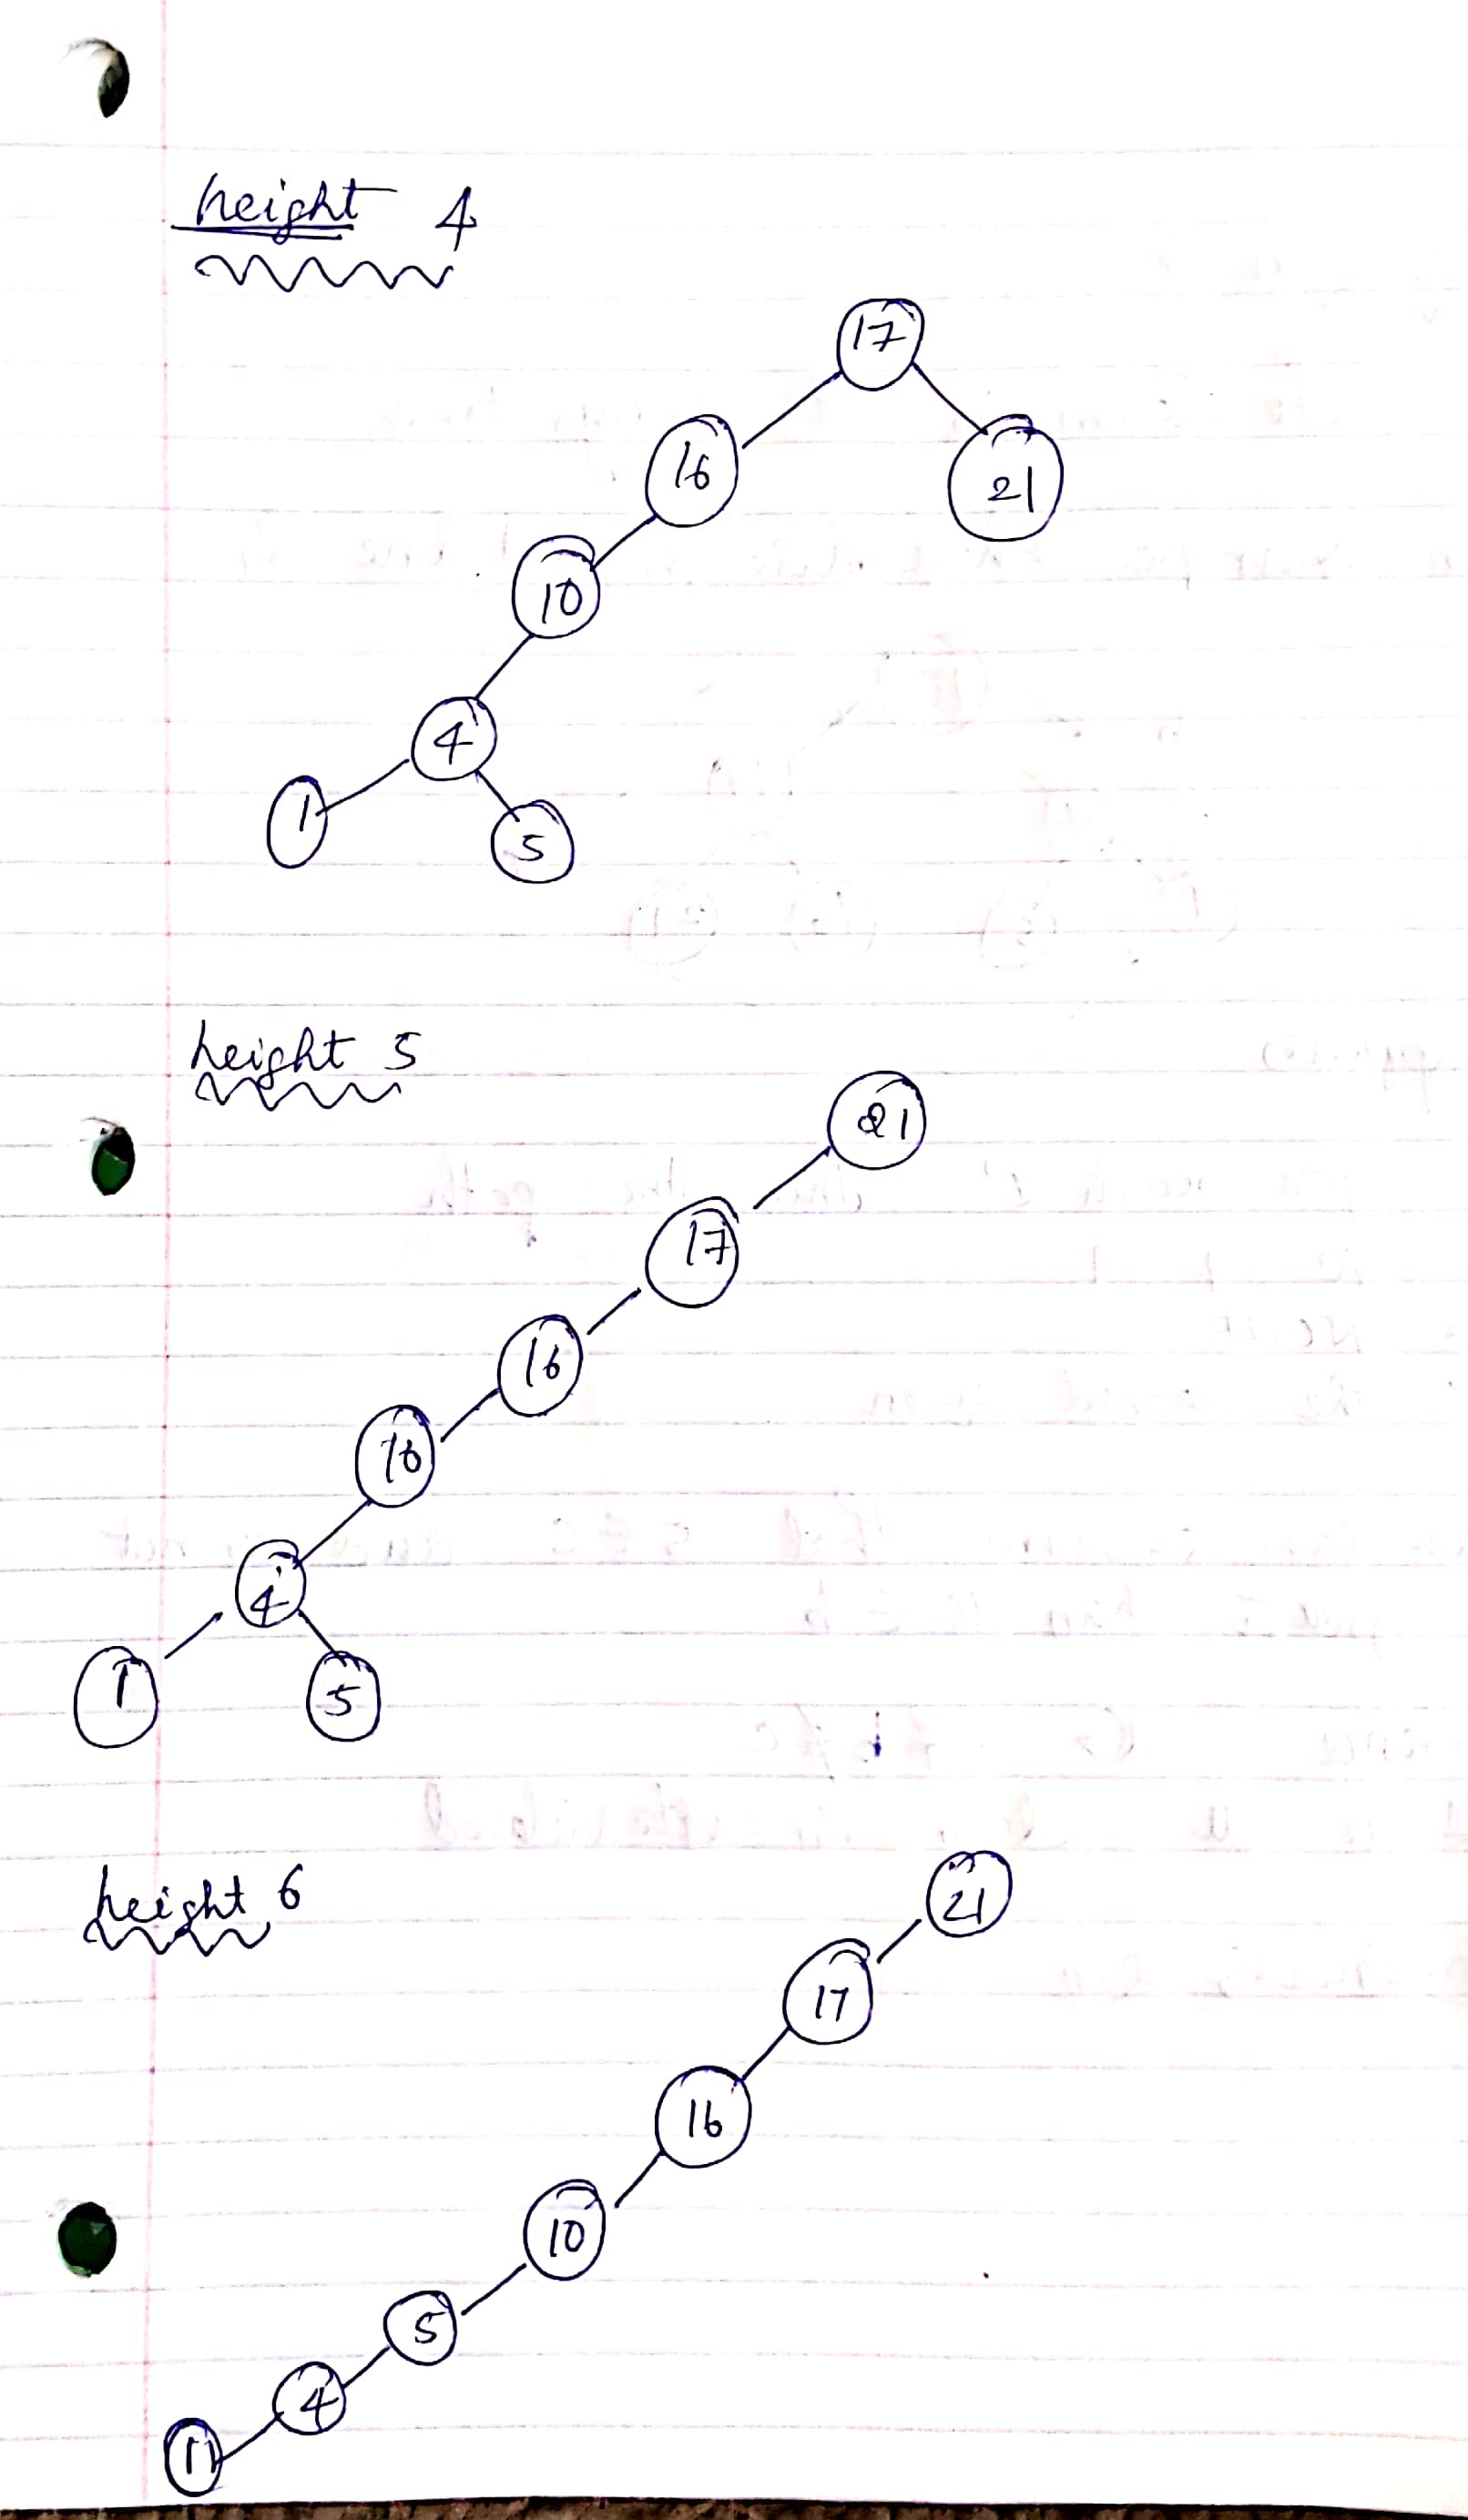 height 4
17
16
21
10
4
1
5
height 5
21
17
16
10
4
1
5
height 6
21
17
16
10
5
4
1